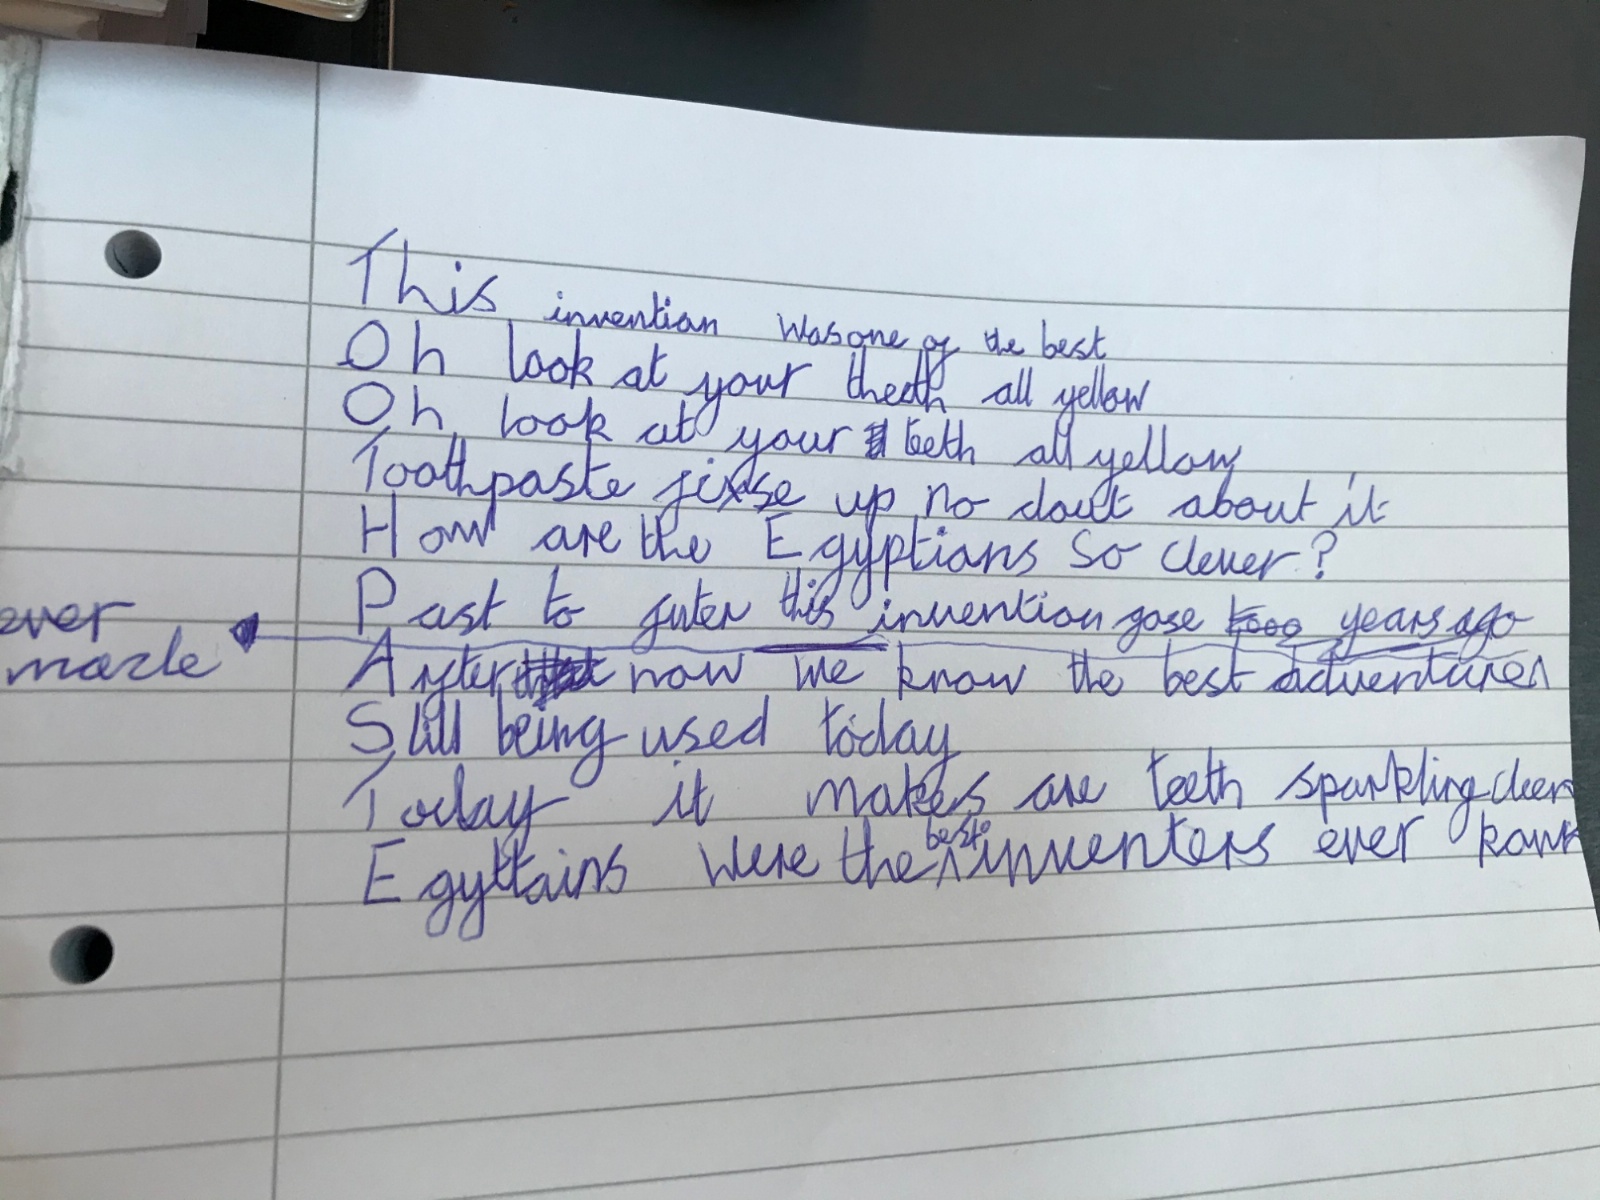 This invention was one of the best
Oh look at your theath all yellow
Oh look at your teeth all yellow
Toothpaste fixse up no dout about it
How are the Egyptians so clever?
Past to futer this invention gose years ago
ever
made
After now we know the best adventures
Still being used today
Today it makes are teeth sparkling cleen
Egyttains were the best inventers ever